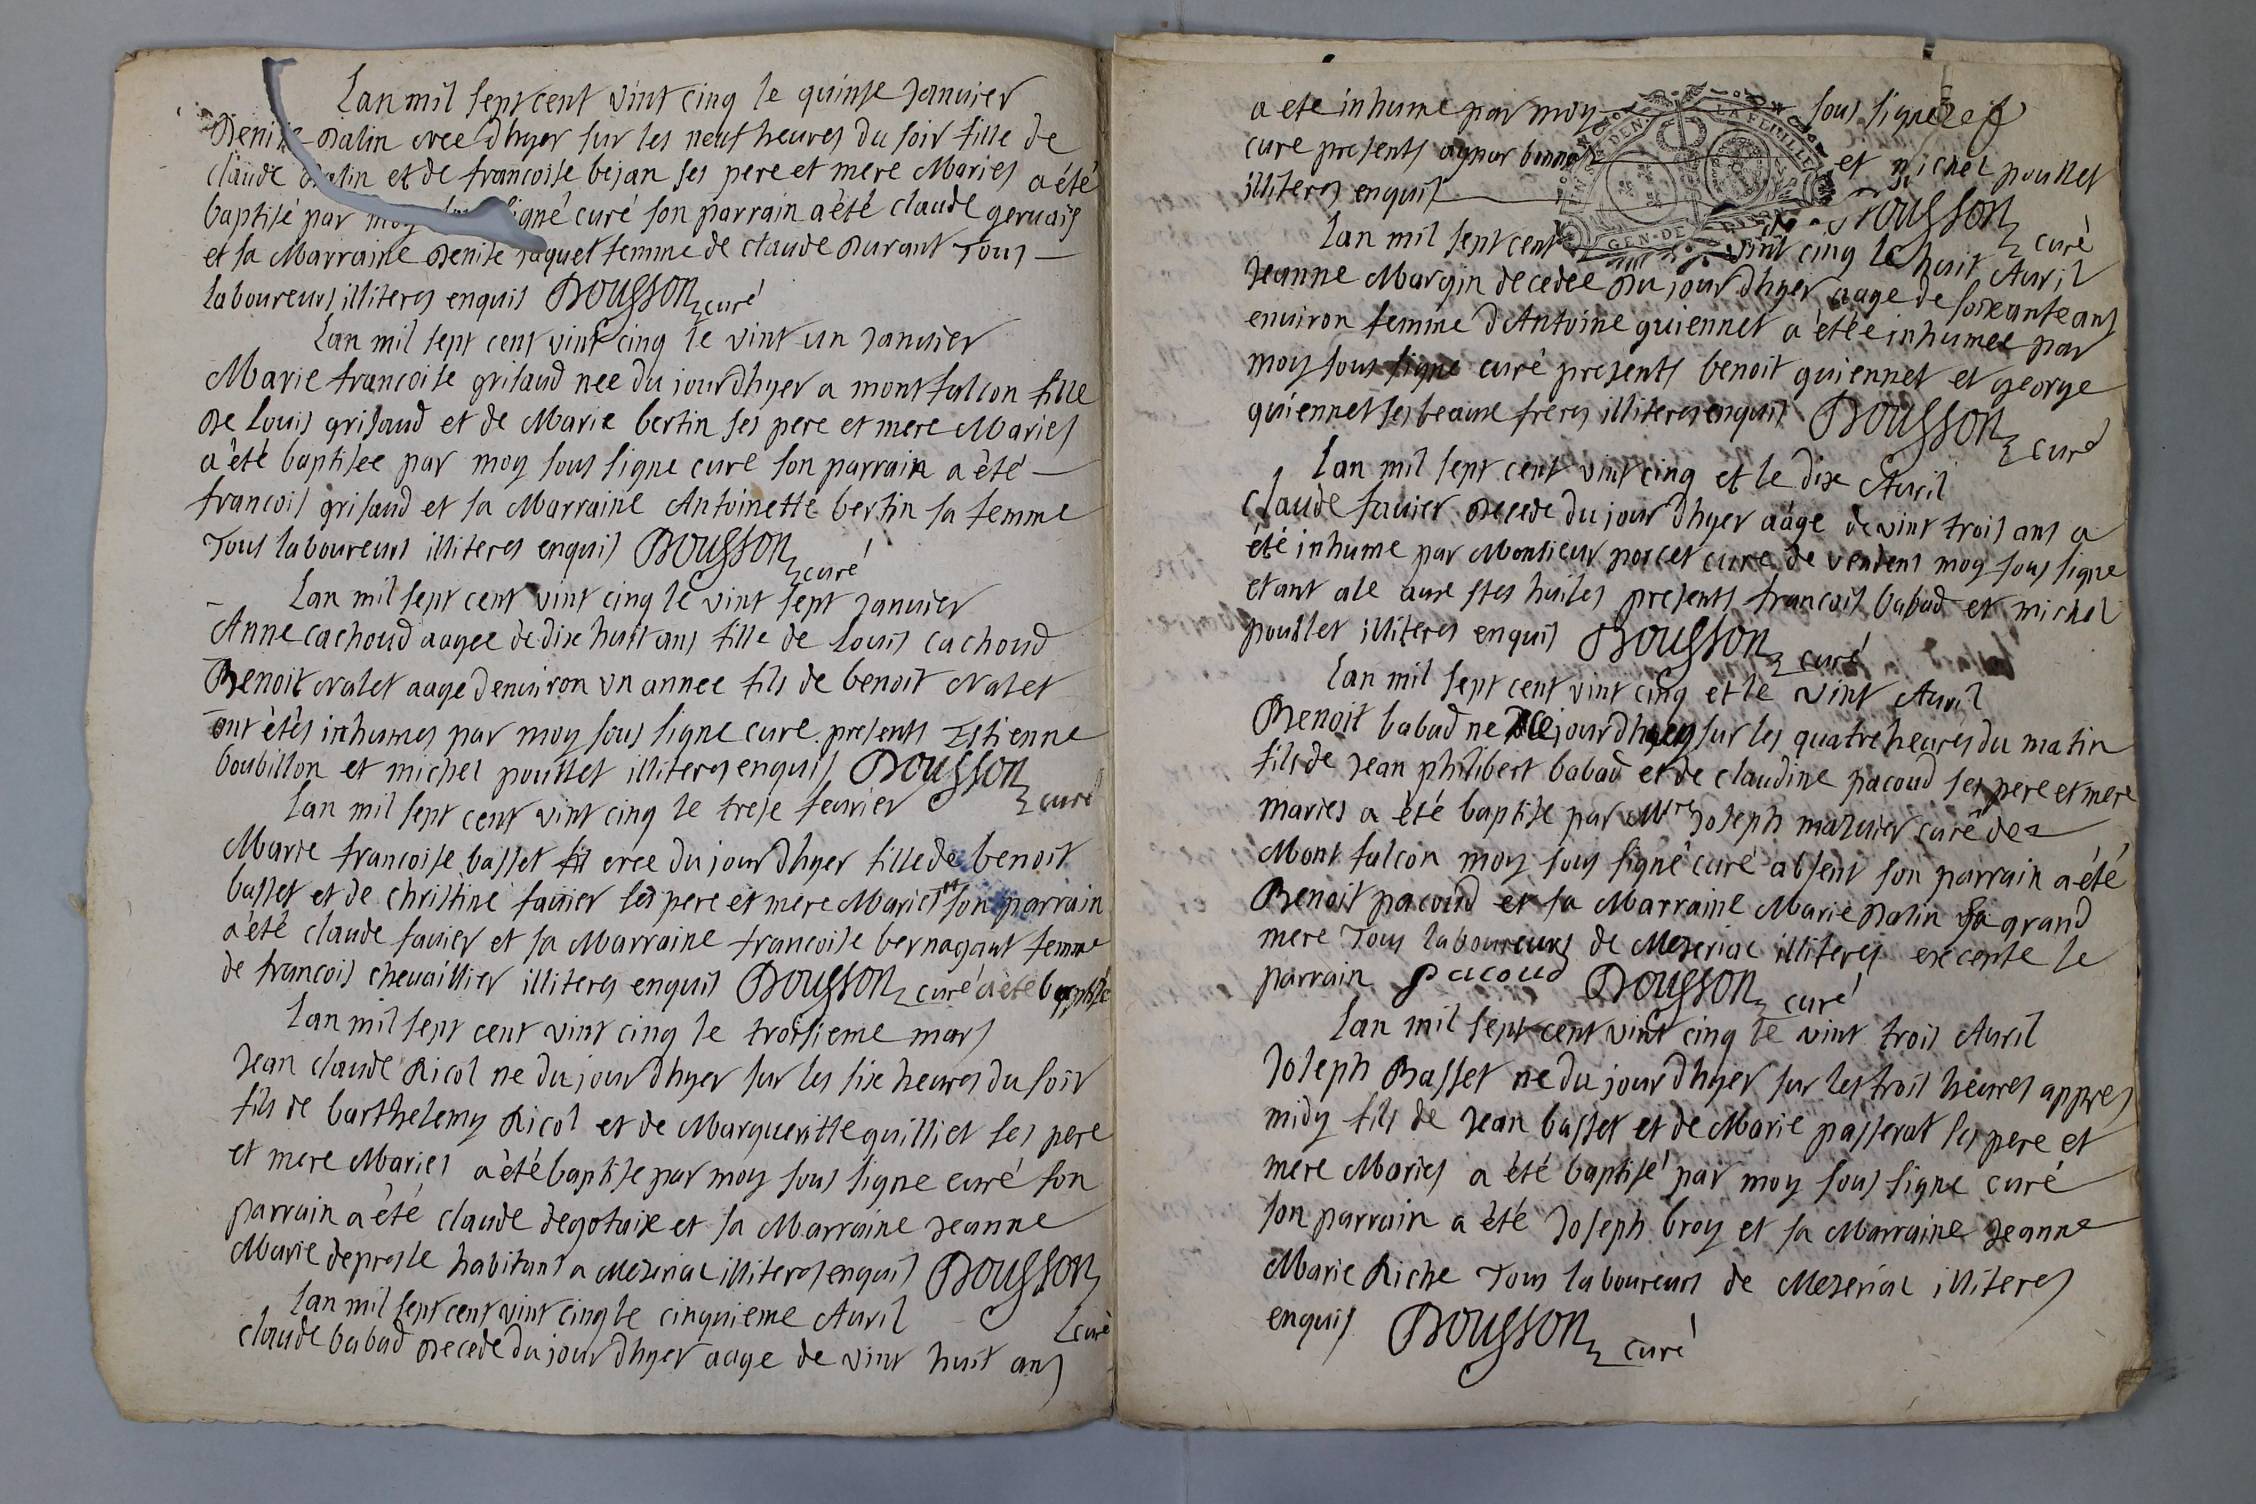 Lan mil sept cent vint cinq le quinse Janvier
Denise Dalin nee dhyer sur les neuf heures du soir fille de
claude Dalin et de francoise bejan ses pere et mere Maries a été
baptisé par moy signé curé son parrain a été claude gervais
et sa Marraine Denise Jaquet femme de claude Durant Tous
laboureurs illiteres enquis Dousson curé
Lan mil sept cent vint cinq le vint un Janvier
Marie francoise grisaud nee du jour dhyer a montfalcon fille
De Louis grisaud et de Marie bertin ses pere et mere Maries
a été baptisée par moy sous signe curé son parrain a été
francois grisaud et sa Marraine Antoinette bertin sa femme
Tous laboureurs illiteres enquis Dousson curé
Lan mil sept cent vint cinq le vint sept Janvier
Anne cachoud aagee de dix huit ans fille de Louis cachoud
Benoit Nalet aage denviron un annee fils de benoit Nalet
ont étés inhumes par moy sous signe curé presents Estienne
boubillon et michel poullet illiteres enquis Dousson curé
Lan mil sept cent vint cinq le trese fevrier
Marie francoise basset nee du jour dhyer fille de benoit
basset et de christine favier ses pere et mere Maries son parrain
a été claude favier et sa Marraine francoise bernagaut femme
de francois chevaillier illiteres enquis Dousson curé a été baptisée
Lan mil sept cent vint cinq le troisieme mars
Jean claude Ricol ne du jour dhyer sur les six heures du soir
fils de barthelemy Ricol et de Margueritte guilliet ses pere
et mere Maries a été baptise par moy sous signe curé son
parrain a été claude degotaix et sa Marraine Jeanne
Marie depresle habitans a Meseriac illiteres enquis Dousson
curé
Lan mil sept cent vint cinq le cinquieme Avril
claude babad Decede du jour dhyer aage de vint huit ans
a ete inhume par moy sous signe
curé presents bonnet et Michel poullet
illiteres enquis Dousson
curé
GEN · DE
LA FEUILLE
Lan mil sept cent vint cinq le huit Avril
Jeanne Margin decedee du jour dhyer aage de soixante ans
environ femme d'Antoine guiennet a été inhumee par
moy sous signe curé presents benoit guiennet et george
guiennet ses beaux freres illiteres enquis Dousson
curé
Lan mil sept cent vint cinq et le dix Avril
Claude favier Decede du jour dhyer aage de vint trois ans a
été inhume par Monsieur porcet curé de vendens moy sous signe
etant ale aux stes huiles presents francois babad et michel
poullet illiteres enquis Dousson curé
Lan mil sept cent vint cinq et le vint Avril
Benoit babad ne jourdhuy sur les quatre heures du matin
fils de Jean philibert babad et de claudine pacoud ses pere et mere
maries a été baptise par Mre Joseph mazuier curé de
Mont falcon moy sous signé curé absent son parrain a été
Benoit pacoud et sa Marraine Marie Dalin sa grand
mere Tous laboureurs de Meseriac illiteres excepte le
parrain pacoud Dousson curé
Lan mil sept cent vint cinq le vint trois Avril
Joseph Basset ne du jour dhyer sur les trois heures appres
midy fils de Jean basset et de Marie passerat ses pere et
mere Maries a été baptisé par moy sous signe curé
son parrain a été Joseph broy et sa Marraine Jeanne
Marie Riche Tous laboureurs de Meseriac illiteres
enquis Dousson curé